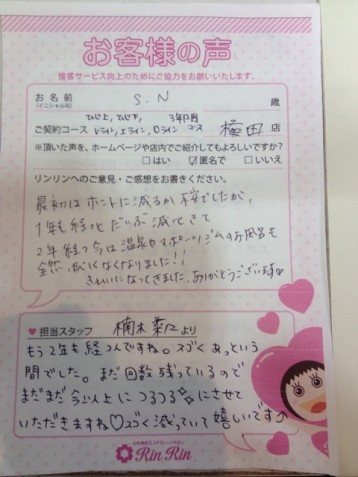 お客様の声
接客サービス向上のためにご協力をお願いいたします。
お名前
(イニシャル可)
S.N
歳
ひじ上, ひじ下, 3年
ご契約コース
Vライン, Iライン, Oライン コース
店
※頂いた声を、ホームページや店内でご紹介してもよろしいですか?
□はい ☑匿名で □いいえ
リンリンへのご意見・ご感想をお書きください。
最初はホントに減るか でしたが、
1年も経つとだいぶ減ってきて
2年経つ今は温泉やスポーツジムのお風呂も
全然 なくなりました!!
きれいになってきました。ありがとうございます♡
♥ 担当スタッフ
楠木 より
もう2年も経つんですね。スゴくあっという
間でした。まだ回数残っているので
まだまだ今以上につるつる にさせて
いただきますね♡スゴく減っていて嬉しいです♪
Rin Rin